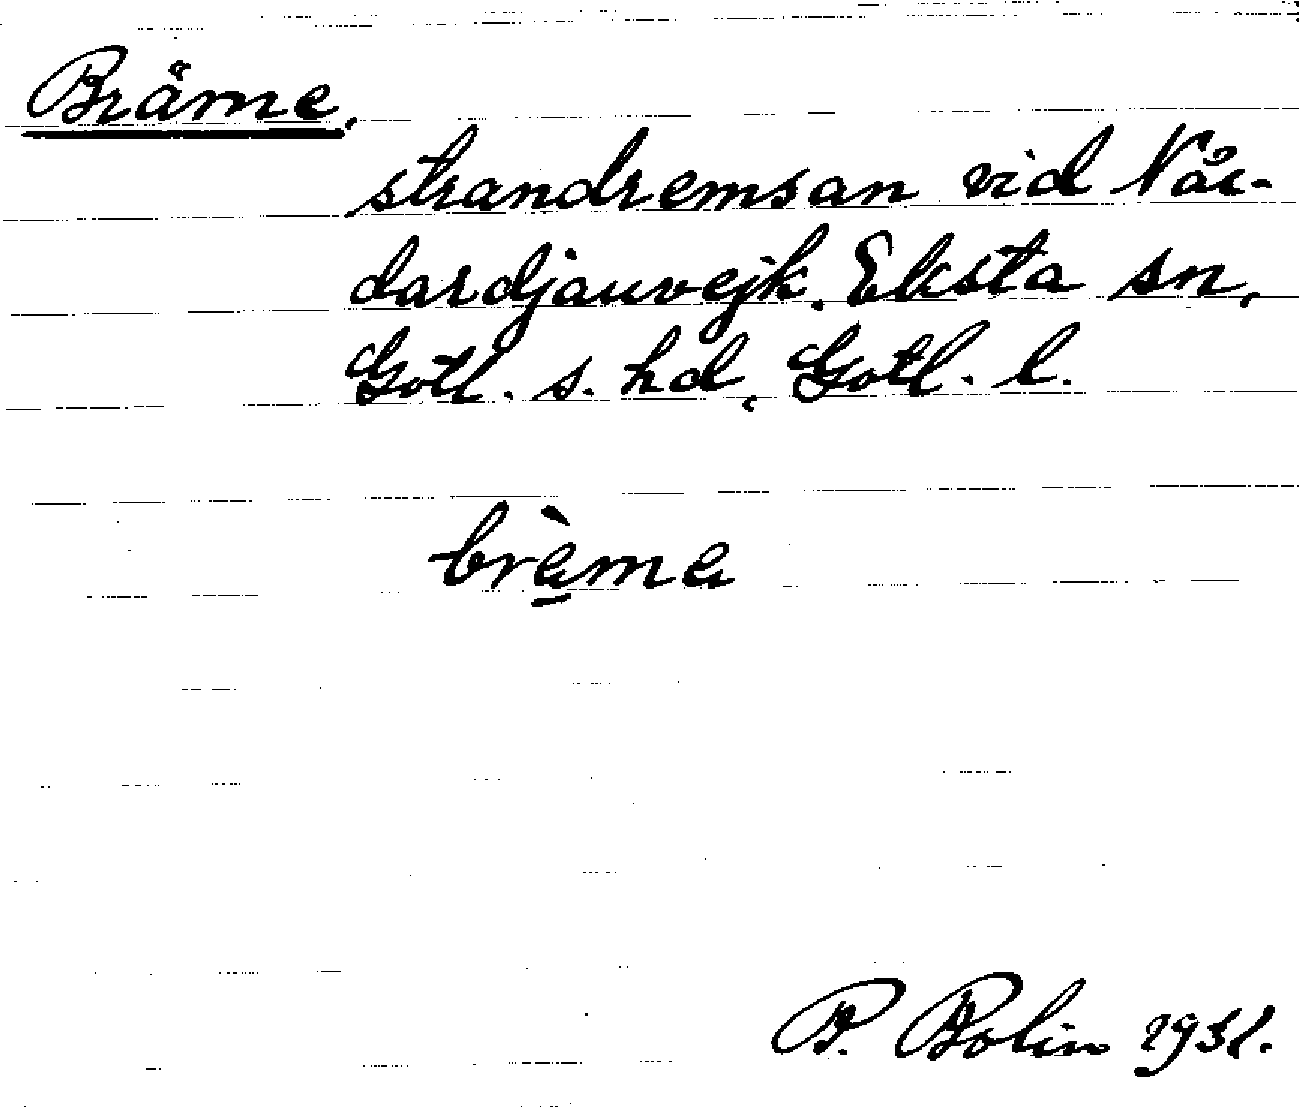 Bräme,
strandremsan vid Når-
dardjauvejk. Eksta sn,
Gotl. s. hd, Gotl. l.
brèma
B. Bolin 1931.